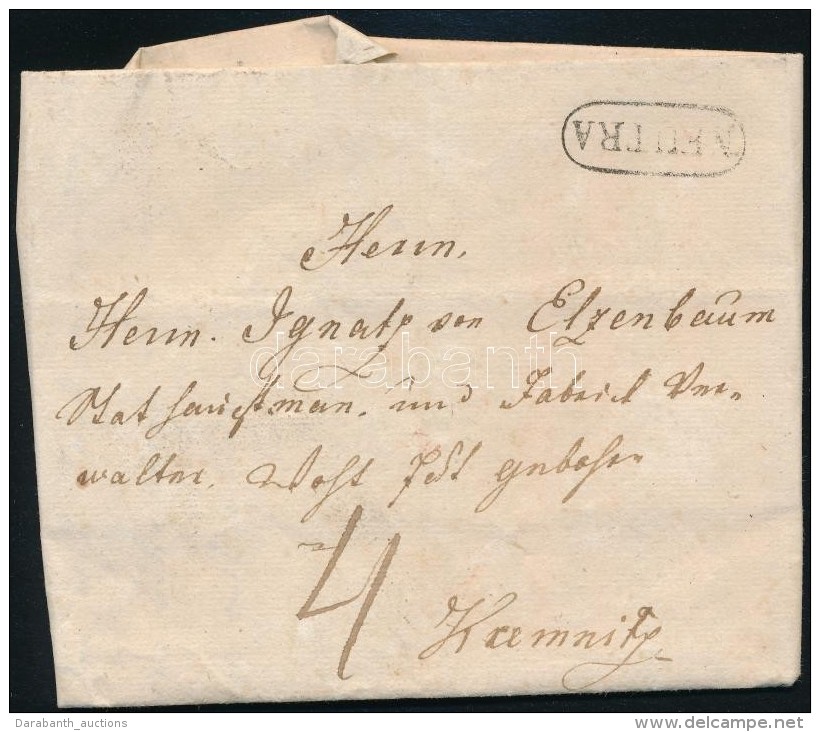 NEUTRA
Herrn,
Herrn. Ignatz von Elzenbaum
Stathauptman, und Fabrick Ver=
walter, Wohl Edl gebohrn
4
Kremnitz
darabanth
Darabanth_auctions
www.delcampe.net